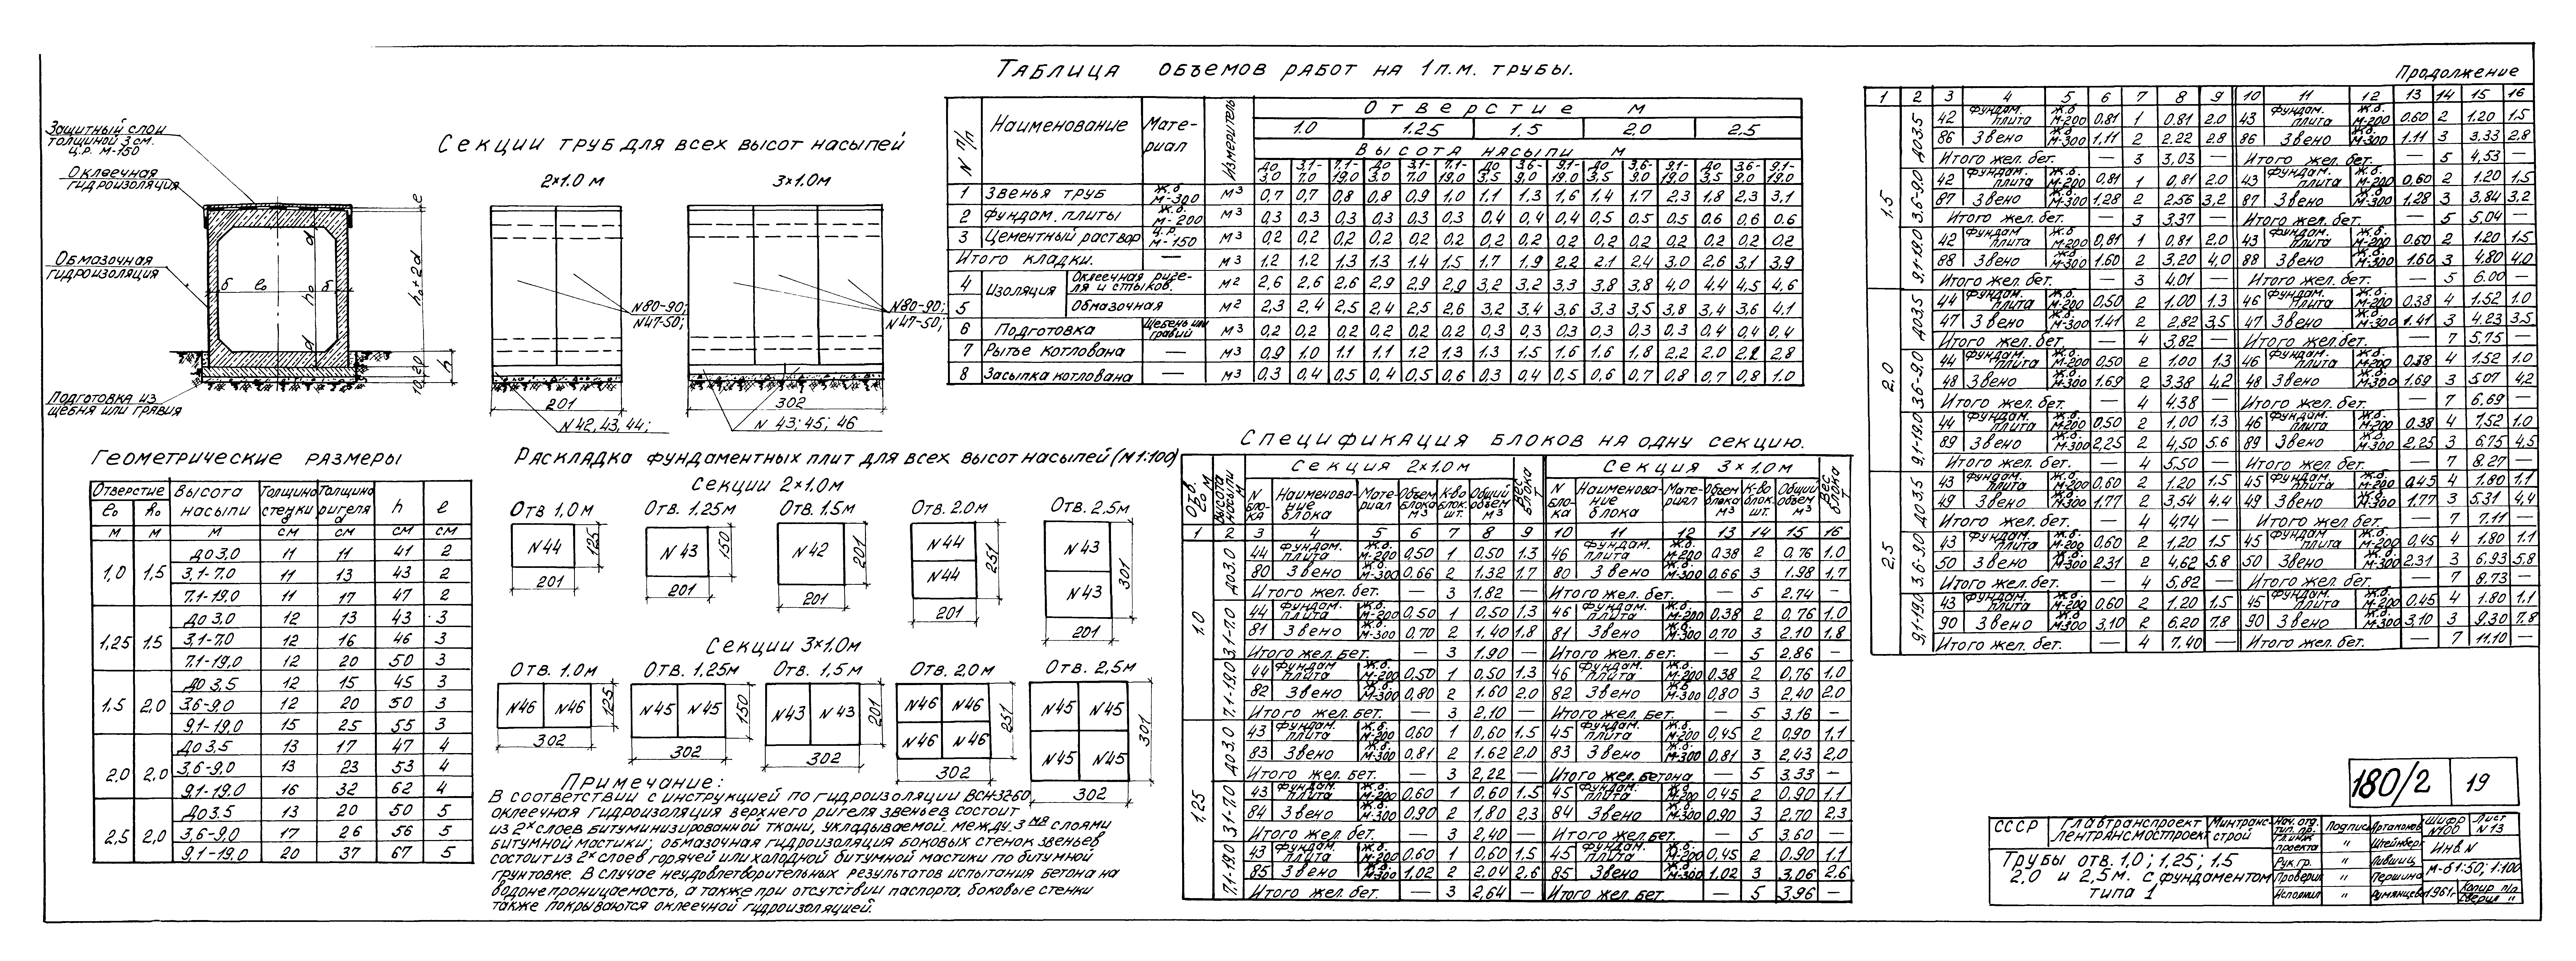 Таблица объемов работ на 1 п.м. трубы.
Продолжение
Защитный слой
толщиной 3 см.
ц.р. М-150
Оклеечная
гидроизоляция
Обмазочная
гидроизоляция
Подготовка из
щебня или гравия
δ l₀ δ
d h₀ d
e
h₀+2d
h
10;20
Секции труб для всех высот насыпей
2×1.0 м 3×1.0 м
N80-90; N80-90;
N47-50; N47-50;
201 302
N 42, 43, 44; N 43; 45; 46
N п/п Наименование Мате-риал Измеритель Отверстие м
1.0 1.25 1.5 2,0 2.5
Высота насыпи м
до 3,0 3,1-7.0 7.1-19,0 до 3.0 3,1-7.0 7,1-19.0 до 3.5 3.6-9,0 9,1-19,0 до 3,5 3,6-9.0 9,1-19,0 до 3,5 3,6-9.0 9,1-19,0
1 Звенья труб ж.б М-300 м3 0,7 0,7 0,8 0,8 0,9 1.0 1.1 1.3 1.6 1.4 1.7 2.3 1.8 2,3 3,1
2 Фундам. плиты ж.б. М-200 м3 0,3 0,3 0,3 0,3 0,3 0,3 0,4 0,4 0,4 0,5 0,5 0,5 0,6 0,6 0,6
3 Цементный раствор ц.р. М-150 м3 0,2 0,2 0,2 0,2 0,2 0,2 0,2 0,2 0,2 0,2 0,2 0,2 0,2 0,2 0,2
Итого кладки. — м3 1,2 1,2 1,3 1.3 1.4 1.5 1.7 1.9 2.2 2.1 2.4 3.0 2,6 3,1 3,9
4 Изоляция Оклеечная ригеля и стыков. м2 2,6 2,6 2,6 2,9 2,9 2,9 3,2 3,2 3,3 3,8 3,8 4.0 4.4 4,5 4,6
5 Обмазочная м2 2,3 2,4 2,5 2,4 2,5 2,6 3,2 3,4 3,6 3,3 3,5 3,8 3,4 3,6 4.1
6 Подготовка Щебень или гравий м3 0,2 0,2 0,2 0,2 0,2 0,2 0,3 0,3 0,3 0,3 0,3 0,3 0,4 0,4 0,4
7 Рытье котлована — м3 0,9 1.0 1.1 1.1 1.2 1.3 1.3 1.5 1.6 1.6 1.8 2.2 2.0 2.8
8 Засыпка котлована — м3 0.3 0,4 0,5 0,4 0,5 0,6 0,3 0,4 0,5 0,6 0,7 0,8 0,7 0,8 1.0
Геометрические размеры
Отверстие Высота насыпи Толщина стенки δ Толщина ригеля d h e
l₀ h₀
м м м см см см см
1,0 1,5 до 3,0 11 11 41 2
3,1-7.0 11 13 43 2
7.1-19,0 11 17 47 2
1,25 1.5 до 3.0 12 13 43 3
3,1-7.0 12 16 46 3
7.1-19,0 12 20 50 3
1,5 2,0 до 3,5 12 15 45 3
3,6-9,0 12 20 50 3
9.1-19,0 15 25 55 3
2,0 2,0 до 3,5 13 17 47 4
3,6-9,0 13 23 53 4
9.1-19.0 16 32 62 4
2,5 2,0 до 3.5 13 20 50 5
3,6-9.0 17 26 56 5
9,1-19,0 20 37 67 5
Раскладка фундаментных плит для всех высот насыпей (М 1:100)
Секции 2×1.0 м
Отв 1,0 м Отв. 1.25 м Отв. 1.5 м Отв. 2.0 м Отв. 2.5 м
N44 125 201
N43 150 201
N42 201 201
N44 N44 251 201
N43 N43 301 201
Секции 3×1.0 м
Отв. 1.0 м Отв. 1,25 м Отв. 1,5 м Отв. 2,0 м Отв. 2,5 м
N46 N46 125 302
N45 N45 150 302
N43 N43 201 302
N46 N46 N46 N46 251 302
N45 N45 N45 N45 301 302
Примечание:
В соответствии с инструкцией по гидроизоляции ВСН-32-60,
оклеечная гидроизоляция верхнего ригеля звеньев состоит
из 2х слоев битуминизированной ткани, укладываемой между 3мя слоями
битумной мастики; обмазочная гидроизоляция боковых стенок звеньев
состоит из 2х слоев горячей или холодной битумной мастики по битумной
грунтовке. В случае неудовлетворительных результатов испытания бетона на
водонепроницаемость, а также при отсутствии паспорта, боковые стенки
также покрываются оклеечной гидроизоляцией.
Спецификация блоков на одну секцию.
Отв. l₀ м Высота насыпи м Секция 2×1.0 м Вес блока т Секция 3×1,0 м Вес блока т
N бло-ка Наименова-ние блока Мате-риал Объем блока м3 К-во блок. шт. Общий объем м3 N бло-ка Наименова-ние блока Мате-риал Объем блока м3 К-во блок. шт. Общий объем м3
1 2 3 4 5 6 7 8 9 10 11 12 13 14 15 16
1.0 до 3.0 44 Фундам. плита ж.б. М-200 0,50 1 0,50 1.3 46 Фундам. плита ж.б. М-200 0.38 2 0,76 1.0
80 Звено ж.б. М-300 0.66 2 1,32 1.7 80 Звено ж.б. М-300 0.66 3 1.98 1,7
Итого жел. бет. — 3 1.82 — Итого жел. бет. — 5 2.74 —
3.1-7.0 44 Фундам. плита ж.б. М-200 0,50 1 0.50 1.3 46 Фундам. плита ж.б. М-200 0,38 2 0,76 1.0
81 Звено ж.б. М-300 0.70 2 1.40 1.8 81 Звено ж.б. М-300 0.70 3 2.10 1,8
Итого жел. бет. — 3 1.90 — Итого жел. бет. — 5 2.86 —
7.1-19,0 44 Фундам плита ж.б. М-200 0,50 1 0.50 1.3 46 Фундам. плита ж.б. М-200 0.38 2 0,76 1.0
82 Звено ж.б. М-300 0,80 2 1.60 2.0 82 Звено ж.б М-300 0,80 3 2,40 2.0
Итого жел. бет. — 3 2,10 — Итого жел. бет. — 5 3.16 —
1,25 до 3.0 43 Фундам. плита ж.б. М-200 0.60 1 0,60 1.5 45 Фундам. плита ж.б. М-200 0,45 2 0,90 1,1
83 Звено ж.б. М-300 0.81 2 1.62 2.0 83 Звено ж.б. М-300 0,81 3 2,43 2,0
Итого жел. бет. — 3 2,22 — Итого жел. бетона — 5 3.33 —
3.1-7.0 43 Фундам. плита ж.б. М-200 0.60 1 0.60 1.5 45 Фундам. плита ж.б. М-200 0,45 2 0.90 1.1
84 Звено ж.б. М-300 0.90 2 1.80 2.3 84 Звено ж.б. М-300 0.90 3 2.70 2,3
Итого жел. бет. — 3 2,40 — Итого жел. бет. — 5 3.60 —
7.1-19.0 43 Фундам. плита ж.б. М-200 0.60 1 0,60 1.5 45 Фундам. плита ж.б. М-200 0,45 2 0.90 1,1
85 Звено ж.б. М-300 1.02 2 2,04 2,6 85 Звено ж.б. М-300 1.02 3 3,06 2.6
Итого жел. бет. — 3 2,64 — Итого жел. бет. — 5 3.96 —
1 2 3 4 5 6 7 8 9 10 11 12 13 14 15 16
1.5 до 3.5 42 Фундам. плита ж.б М-200 0,81 1 0.81 2.0 43 Фундам. плита ж.б. М-200 0.60 2 1.20 1.5
86 Звено ж.б М-300 1,11 2 2.22 2.8 86 Звено ж.б. М-300 1.11 3 3.33 2.8
Итого жел. бет. — 3 3,03 — Итого жел. бет. — 5 4,53 —
3.6-9.0 42 Фундам. плита ж.б. М-200 0,81 1 0,81 2.0 43 Фундам. плита ж.б. М-200 0,60 2 1.20 1.5
87 Звено ж.б. М-300 1.28 2 2.56 3,2 87 Звено ж.б. М-300 1.28 3 3,84 3,2
Итого жел. бет. — 3 3.37 — Итого жел. бет. — 5 5,04 —
9,1-19.0 42 Фундам. плита ж.б М-200 0,81 1 0.81 2.0 43 Фундам. плита ж.б. М-200 0.60 2 1.20 1.5
88 Звено ж.б. М-300 1.60 2 3,20 4,0 88 Звено ж.б. М-300 1.60 3 4.80 4.0
Итого жел. бет. — 3 4.01 — Итого жел. бет. — 5 6.00 —
2,0 до 3.5 44 Фундам. плита ж.б. М-200 0,50 2 1.00 1.3 46 Фундам. плита ж.б. М-200 0.38 4 1.52 1.0
47 Звено ж.б. М-300 1.41 2 2,82 3,5 47 Звено ж.б. М-300 1.41 3 4,23 3.5
Итого жел. бет. — 4 3,82 — Итого жел. бет. — 7 5.75 —
3.6-9,0 44 Фундам. плита ж.б. М-200 0,50 2 1.00 1.3 46 Фундам. плита ж.б. М-200 0.38 4 1.52 1.0
48 Звено ж.б. М-300 1,69 2 3,38 4,2 48 Звено ж.б. М-300 1.69 3 5,07 4,2
Итого жел. бет. — 4 4.38 — Итого жел. бет. — 7 6.69 —
9,1-19.0 44 Фундам. плита ж.б. М-200 0,50 2 1,00 1.3 46 Фундам. плита ж.б. М-200 0.38 4 7,52 1.0
89 Звено ж.б. М-300 2,25 2 4,50 5.6 89 Звено ж.б. М-300 2.25 3 6.75 4,5
Итого жел. бет. — 4 5,50 — Итого жел. бет. — 7 8.27 —
2,5 до 3.5 43 Фундам. плита ж.б. М-200 0.60 2 1.20 1.5 45 Фундам. плита ж.б. М-200 0,45 4 1.80 1.1
49 Звено ж.б. М-300 1.77 2 3,54 4.4 49 Звено ж.б. М-300 1.77 3 5.31 4,4
Итого жел. бет. — 4 4.74 — Итого жел. бет. — 7 7.11 —
3.6-9.0 43 Фундам. плита ж.б. М-200 0.60 2 1,20 1.5 45 Фундам. плита ж.б. М-200 0.45 4 1.80 1.1
50 Звено ж.б. М-300 2.31 2 4,62 5.8 50 Звено ж.б. М-300 2,31 3 6,93 5,8
Итого жел. бет. — 4 5,82 — Итого жел. бет. — 7 8.73 —
9,1-19.0 43 Фундам. плита ж.б. М-200 0.60 2 1.20 1.5 45 Фундам. плита ж.б. М-200 0.45 4 1.80 1.1
90 Звено ж.б. М-300 3,10 2 6.20 7.8 90 Звено ж.б. М-300 3.10 3 9.30 7.8
Итого жел. бет. — 4 7.40 — Итого жел. бет. — 7 11.10 —
180/2 19
СССР Главтранспроект Минтранс-строй
Лентрансмостпроект
Трубы отв. 1,0; 1,25; 1.5
2,0 и 2,5 м. с фундаментом
типа 1
Нач. отд. Подпись Артамонов Шифр N 100 Лист N 13
проекта " Штейнберг Инв. N
Рук. гр. " Лившиц
Проверил " Першина М-б 1:50; 1:100
Исполнил " Румянцева 1961г. Копир п/п
Сверил "